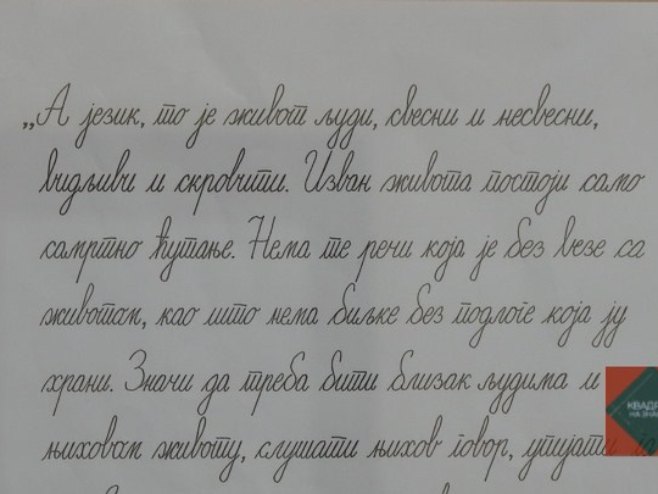 „А језик, то је живот људи, свесни и несвесни,
видљиви и скровити. Изван живота постоји само
самртно ћутање. Нема те речи која је без везе са
животом, као што нема биљке без подлоге која ју
храни. Значи да треба бити близак људима и
њиховом животу, слушати њихов говор, упијати га
КВАДР
НА ЗНАК